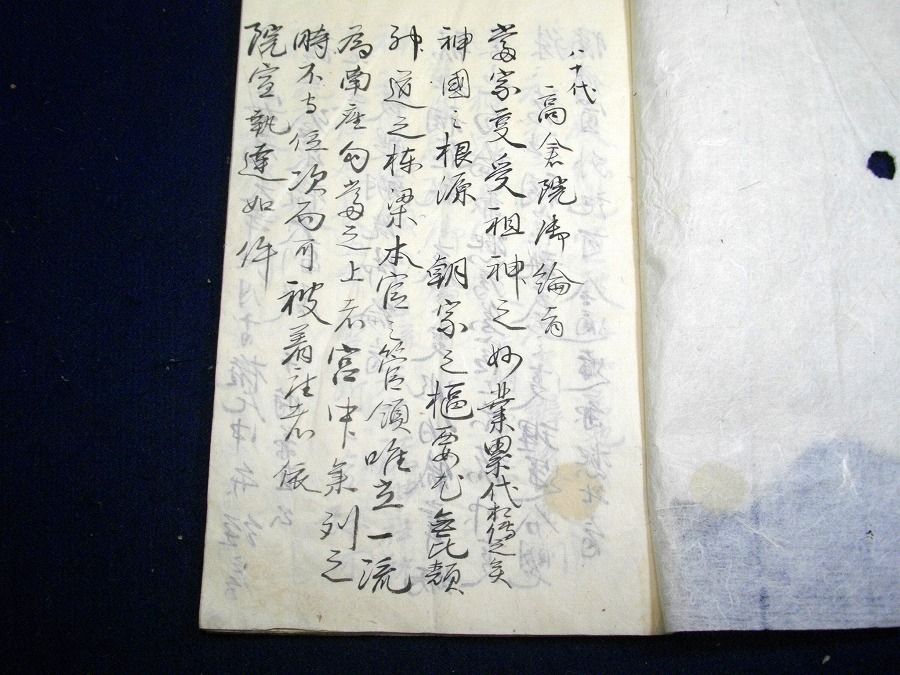 八十代
高倉院御綸旨
當家稟受祖神之妙業累代相傳之矣
神國之根源 朝家之樞要尤無比類
神道之棟梁本官之管領唯立一流
為南座勾當之上者宮中集列之
時不与位次而可被着座者依
院宣執達如件